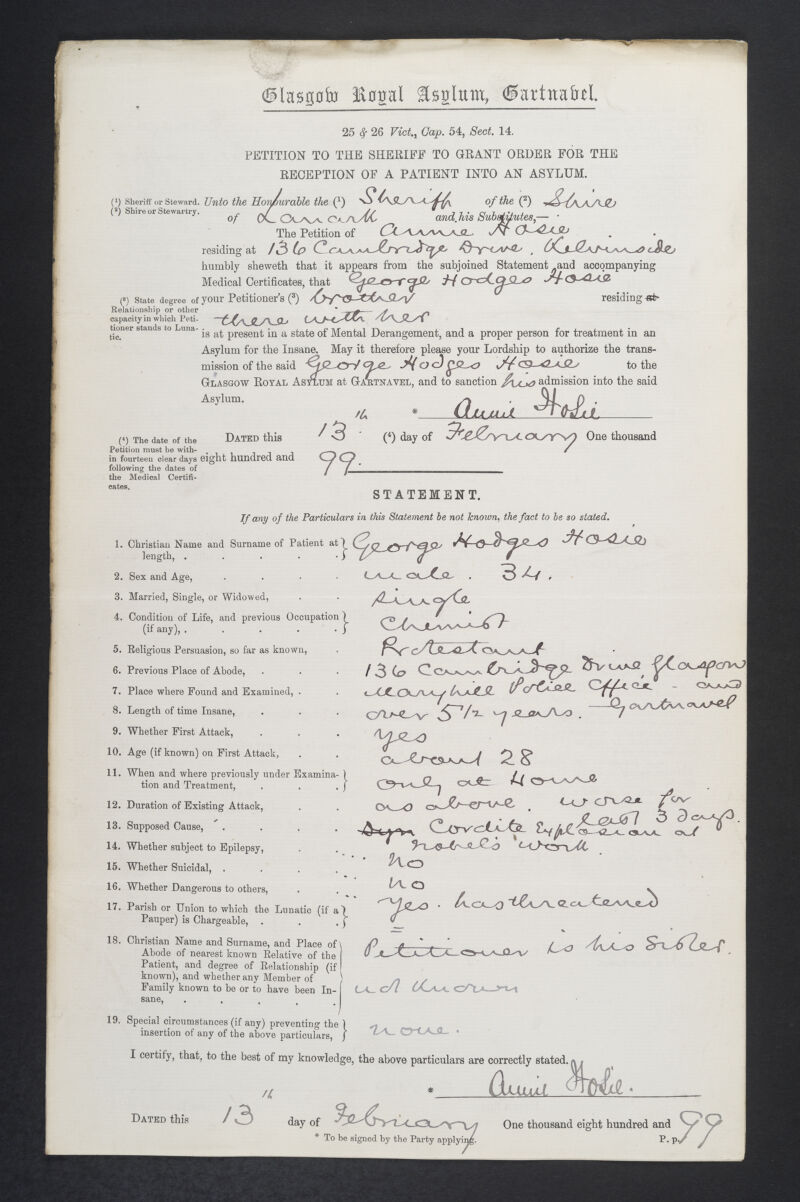 Glasgow Royal Asylum, Gartnavel.
25 & 26 Vict., Cap. 54, Sect. 14.
PETITION TO THE SHERIFF TO GRANT ORDER FOR THE
RECEPTION OF A PATIENT INTO AN ASYLUM.
(¹) Sheriff or Steward.
(²) Shire or Stewartry.
Unto the Honourable the (¹) Sheriff of the (²) Shire
of Lanark and his Substitutes,—
The Petition of Annie Hosie
residing at 136 Cambridge Drive, Kelvinside
humbly sheweth that it appears from the subjoined Statement and accompanying
Medical Certificates, that George Hodges Hosie
(³) State degree of
Relationship or other
capacity in which Peti-
tioner stands to Luna-
tic.
your Petitioner's (³) brother residing at
there with her
is at present in a state of Mental Derangement, and a proper person for treatment in an
Asylum for the Insane. May it therefore please your Lordship to authorize the trans-
mission of the said George Hodges Hosie to the
GLASGOW ROYAL ASYLUM at GARTNAVEL, and to sanction his admission into the said
Asylum.
* Annie Hosie
(⁴) The date of the
Petition must be with-
in fourteen clear days
following the dates of
the Medical Certifi-
cates.
DATED this 13th (⁴) day of February One thousand
eight hundred and 99.
STATEMENT.
If any of the Particulars in this Statement be not known, the fact to be so stated.
1. Christian Name and Surname of Patient at
length, . . . . . George Hodges Hosie
2. Sex and Age, . . . . male. 34.
3. Married, Single, or Widowed, . . single
4. Condition of Life, and previous Occupation
(if any), . . . . . Chemist
5. Religious Persuasion, so far as known, . Protestant
6. Previous Place of Abode, . . . 136 Cambridge Drive Glasgow
7. Place where Found and Examined, . . Maryhill Police Office - and
Gartnavel
8. Length of time Insane, . . . over 5 1/2 years.
9. Whether First Attack, . . . yes
10. Age (if known) on First Attack, . . about 28
11. When and where previously under Examina-
tion and Treatment, . . . only at Home
12. Duration of Existing Attack, . . as above. worse for
last 3 days.
13. Supposed Cause, . . . . Dyn Cordite Explosion at
Nobel's work.
14. Whether subject to Epilepsy, . . . no
15. Whether Suicidal, . . . . no
16. Whether Dangerous to others, . . yes. has threatened
17. Parish or Union to which the Lunatic (if a
Pauper) is Chargeable, . . . =
18. Christian Name and Surname, and Place of
Abode of nearest known Relative of the
Patient, and degree of Relationship (if
known), and whether any Member of
Family known to be or to have been In-
sane, . . . . .
Petitioner is his Sister.
not known
19. Special circumstances (if any) preventing the
insertion of any of the above particulars, none.
I certify, that, to the best of my knowledge, the above particulars are correctly stated.
* Annie Hosie.
DATED this 13th day of February One thousand eight hundred and 99
* To be signed by the Party applying.
P. p.